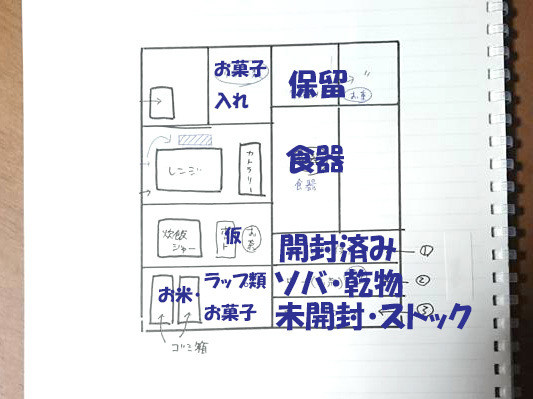 お菓子
入れ
保留
食器
食器
レンジ
カトラリー
炊飯
ジャー
仮
開封済み
①
ラップ類
お米・
お菓子
ソバ・乾物
②
未開封・ストック
③
ゴミ箱